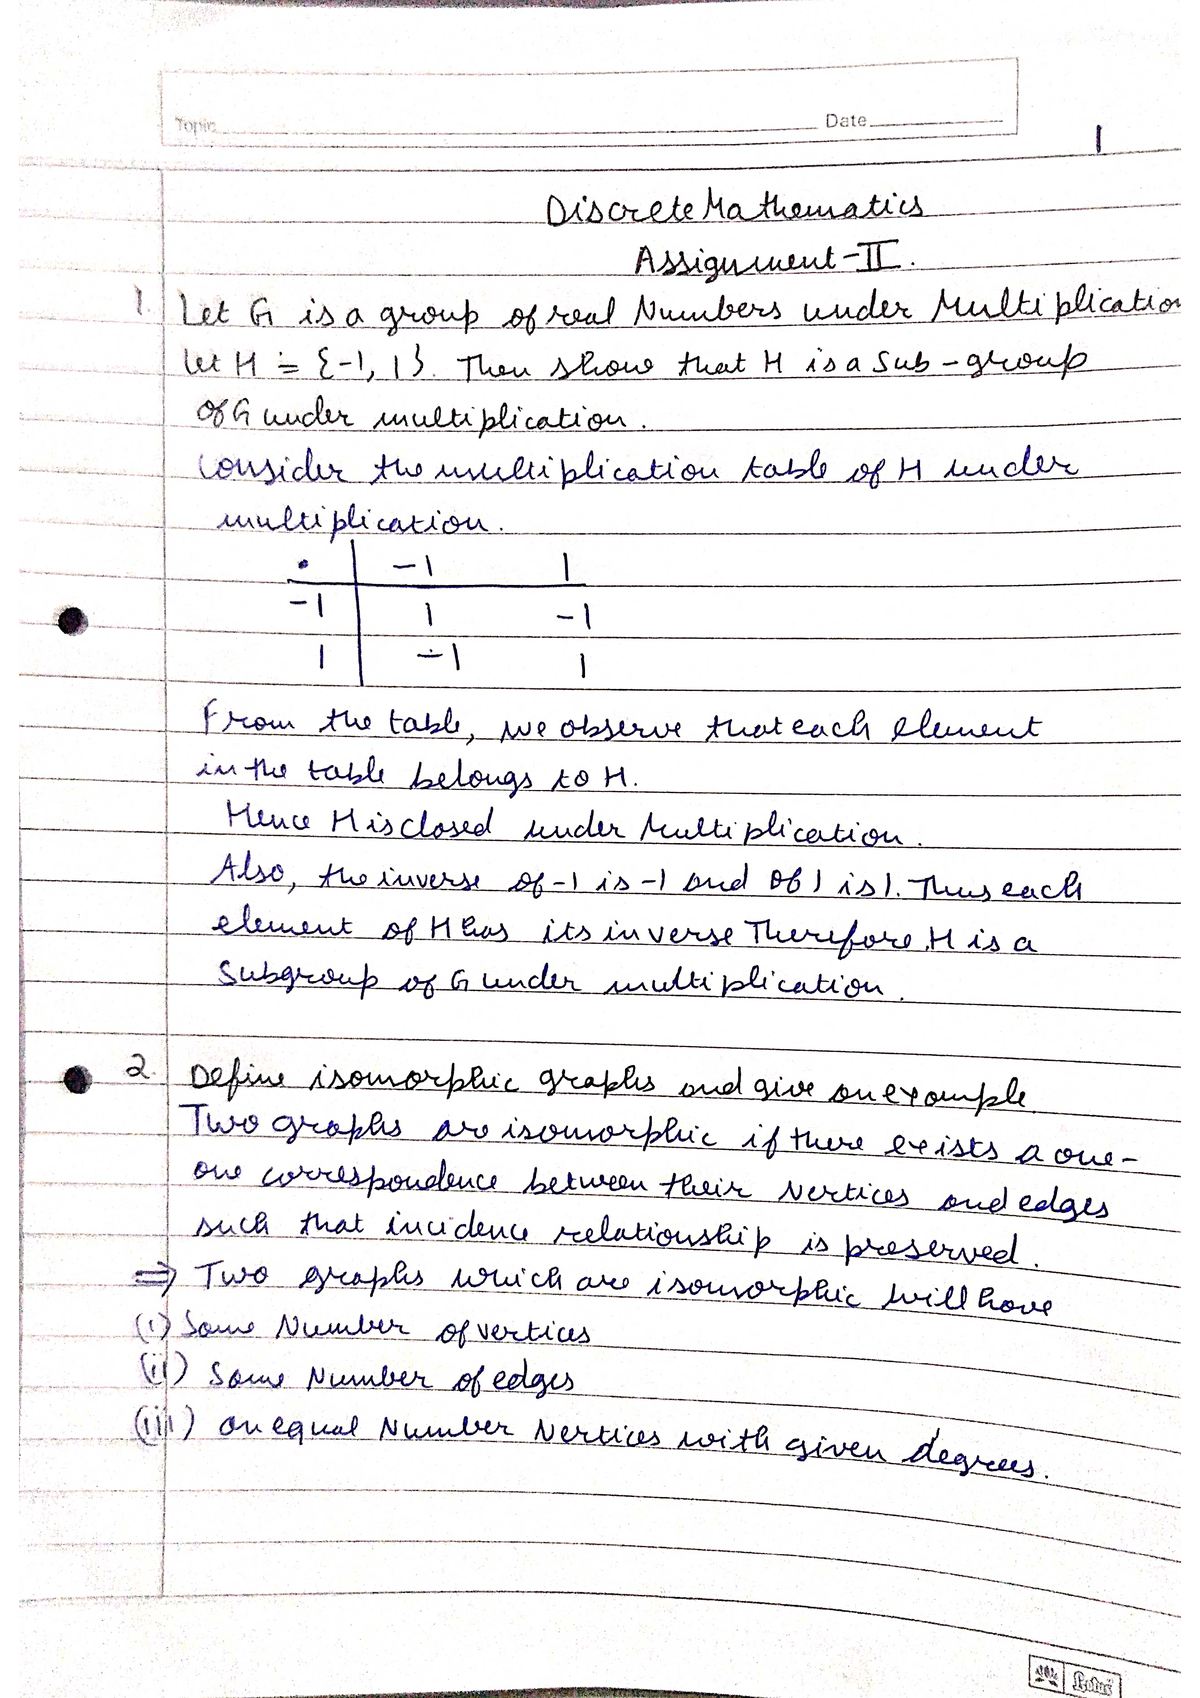 Topic
Date
1
Discrete Mathematics
Assignment-II.
1. Let G is a group of real Numbers under Multiplication
let H = {-1, 1}. Then show that H is a Sub-group
of G under multiplication.
Consider the multiplication table of H under
multiplication.
• -1 1
-1 1 -1
1 -1 1
From the table, we observe that each element
in the table belongs to H.
Hence H is closed under Multiplication.
Also, the inverse of -1 is -1 and of 1 is 1. Thus each
element of H has its inverse Therefore, H is a
Subgroup of G under multiplication.
2. Define isomorphic graphs and give an example.
Two graphs are isomorphic if there exists a one-
one correspondence between their vertices and edges
such that incidence relationship is preserved.
⇒ Two graphs which are isomorphic will have
(i) Same Number of vertices
(ii) Same Number of edges
(iii) an equal Number Vertices with given degrees.
Lotus